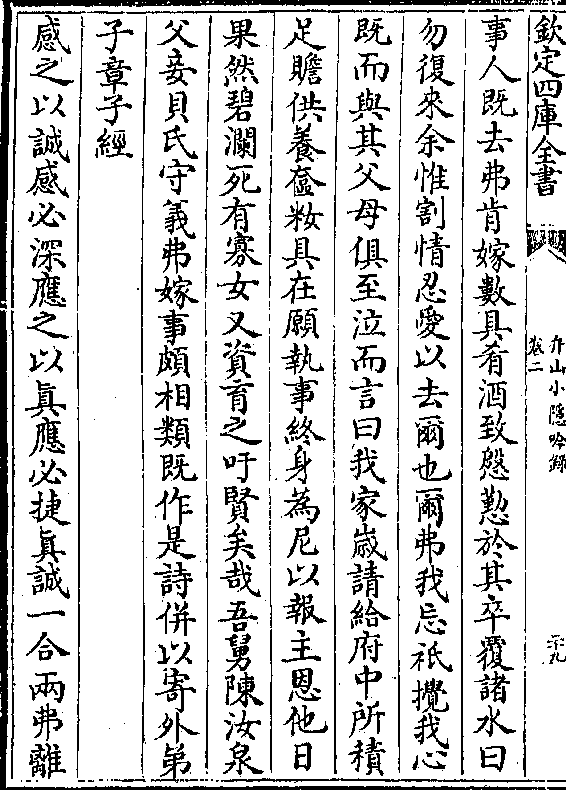 欽定四庫全書
弁山小隱吟錄
卷二
二十九
事人既去弗肯嫁數具肴酒致慇懃於其卒覆諸水曰
勿復來余惟割情忍愛以去爾也爾弗我忘祇攪我心
既而與其父母俱至泣而言曰我家嵗請給府中所積
足贍供養奩粧具在願執事終身為尼以報主恩他日
果然碧瀾死有寡女又資育之吁賢矣哉吾舅陳汝泉
父妾貝氏守義弗嫁事頗相類既作是詩併以寄外弟
子章子經
感之以誠感必深應之以眞應必捷眞誠一合兩弗離